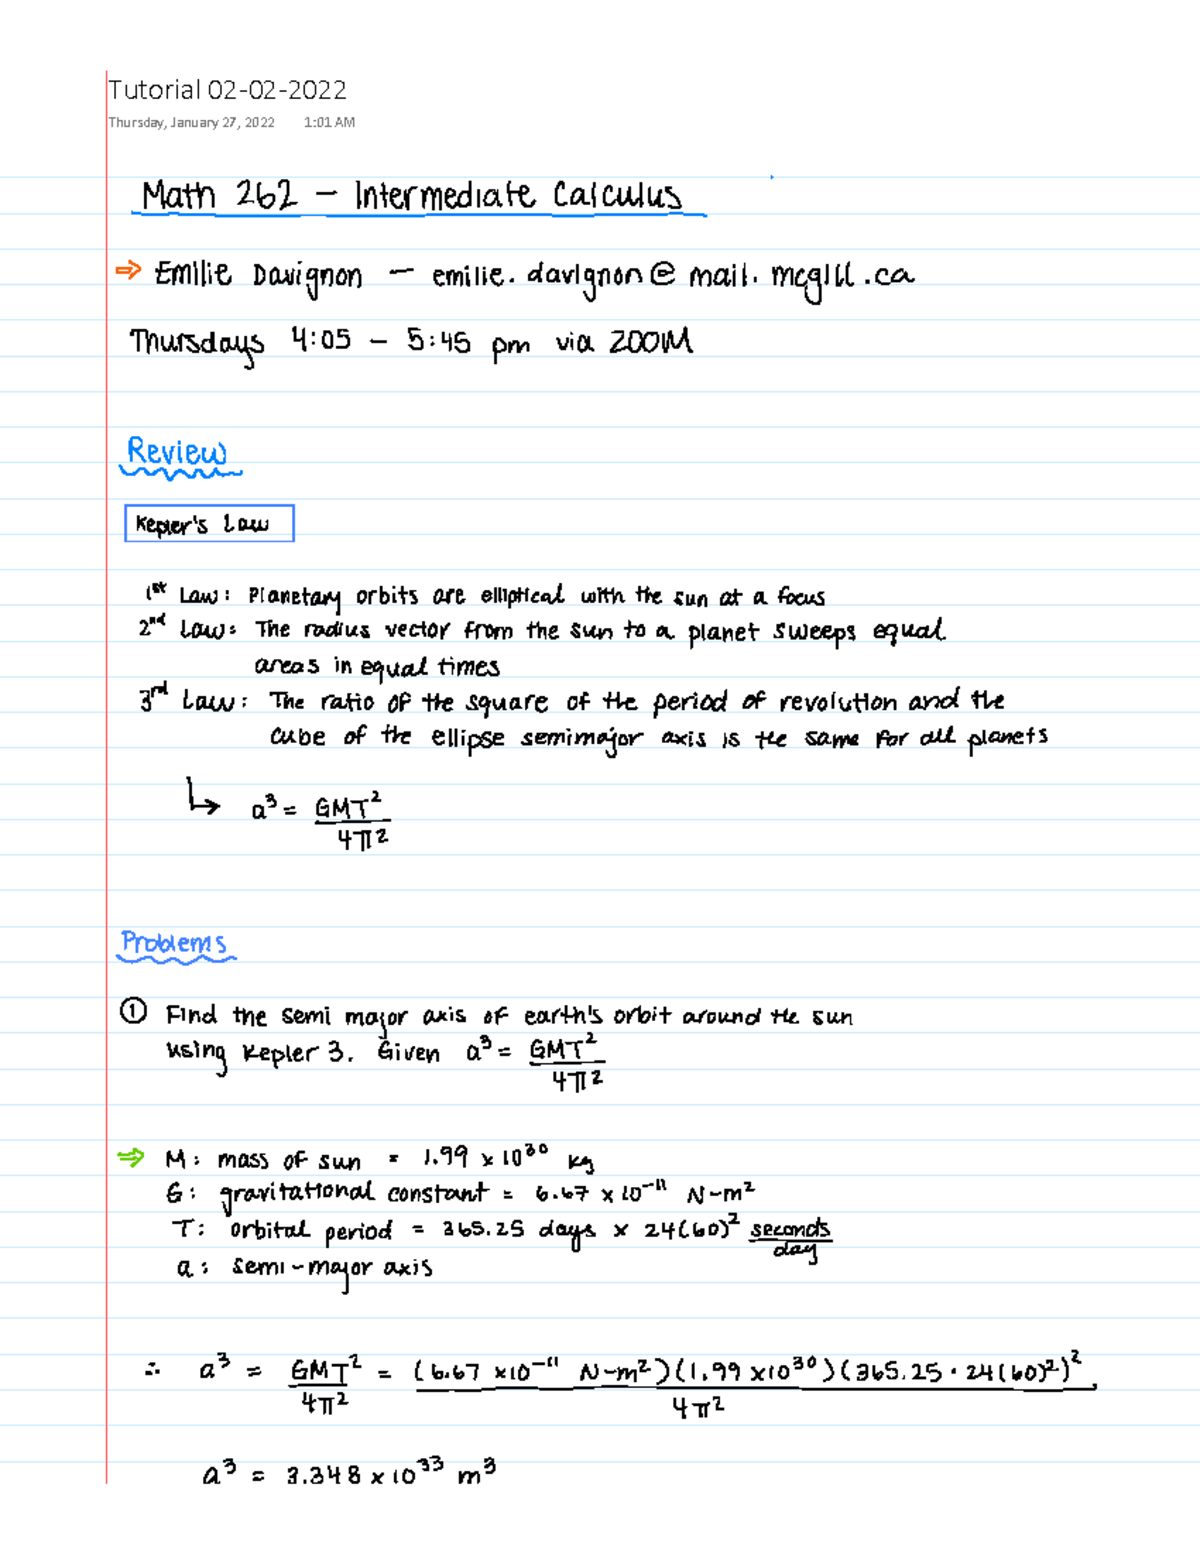 Tutorial 02-02-2022
Thursday, January 27, 2022 1:01 AM
Math 262 – Intermediate Calculus
⇒ Emilie Davignon – emilie.davignon@mail.mcgill.ca
Thursdays 4:05 – 5:45 pm via ZOOM
Review
Kepler's Law
1st Law: Planetary orbits are elliptical with the sun at a focus
2nd Law: The radius vector from the sun to a planet sweeps equal
areas in equal times
3rd Law: The ratio of the square of the period of revolution and the
cube of the ellipse semimajor axis is the same for all planets
↳ a³ = GMT²/4π²
Problems
① Find the semi major axis of earth's orbit around the sun
using Kepler 3. Given a³ = GMT²/4π²
⇒ M: mass of sun = 1.99 x 10³⁰ kg
G: gravitational constant = 6.67 x 10⁻¹¹ N-m²
T: orbital period = 365.25 days x 24(60)² seconds/day
a: semi-major axis
∴ a³ = GMT²/4π² = (6.67 x10⁻¹¹ N-m²)(1.99 x10³⁰)(365.25 · 24(60)²)²/4π²
a³ = 3.348 x 10³³ m³